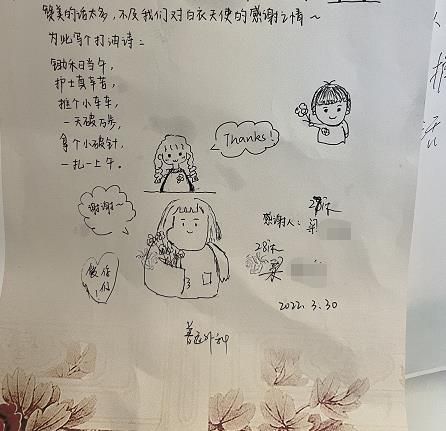 赞美的话太多，不及我们对白衣天使的感谢之情～
为此写个打油诗：
锄禾日当午，
护士真辛苦，
推个小车车，
一天破万步，
拿个小破针，
一扎一上午。
Thanks!
谢谢～
感谢人：
28床
2022.3.30
普通外科